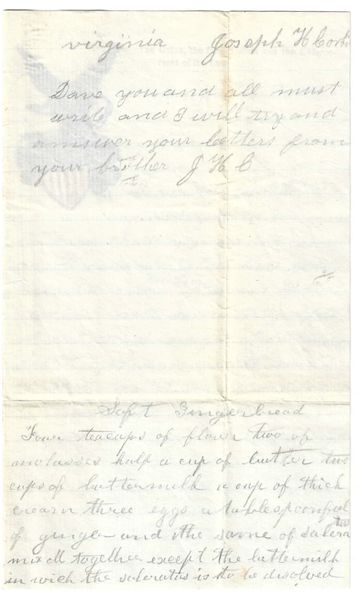 virginia Joseph H
Dave you and all must
write and I will try and
answer your letters from
your brother J H C
Soft Gingerbread
Four teacups of flour two of
molasses half a cup of butter two
cups of buttermilk a cup of thick
cream three eggs a tablespoonful
of ginger and the same of
mix all together except the buttermilk
in wich the saleratus is to be disolved